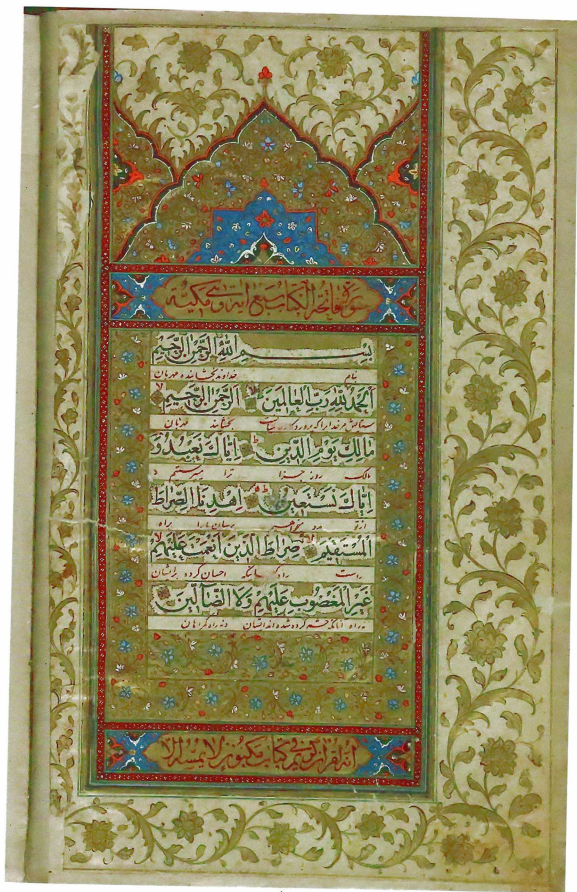 سورة فاتحة الکتاب سبع آیة و هی مکیة
بِسْمِ اللَّهِ الرَّحْمَنِ الرَّحِيمِ
بنام خداوند بخشاینده مهربان
اَلْحَمْدُ لِلَّهِ رَبِّ الْعَالَمِينَ الرَّحْمَنِ الرَّحِيمِ
ستایش مر خدا را که پروردگار بخشاینده مهربان
مَالِكِ يَوْمِ الدِّينِ اِيَّاكَ نَعْبُدُ وَ
مالک روز جزا ترا میپرستیم و
اِيَّاكَ نَسْتَعِينُ اِهْدِنَا الصِّرَاطَ
از تو مدد میخواهیم برسان ما را براه
الْمُسْتَقِيمَ صِرَاطَ الَّذِينَ اَنْعَمْتَ عَلَيْهِمْ
راست راه کسانیکه احسان کرده برایشان
غَيْرِ الْمَغْضُوبِ عَلَيْهِمْ وَلَا الضَّالِّينَ
نه راه آنانکه خشم کرده شده اند ایشان و نه راه گمراهان
انه لقران کریم فی کتاب مکنون لا یمسه الا